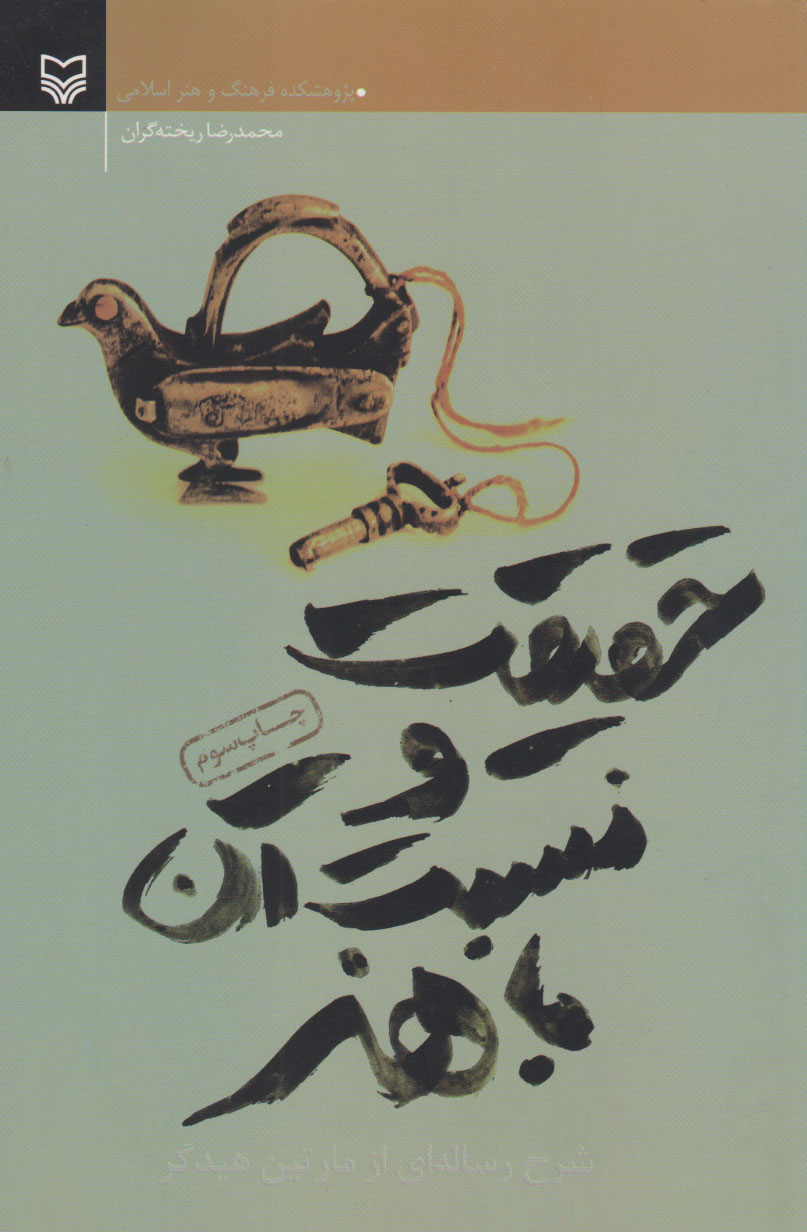 پژوهشکده فرهنگ و هنر اسلامی
محمدرضا ریخته‌گران
حقیقت
و
نسبت آن
با هنر
چاپ سوم
شرح رساله‌ای از مارتین هیدگر